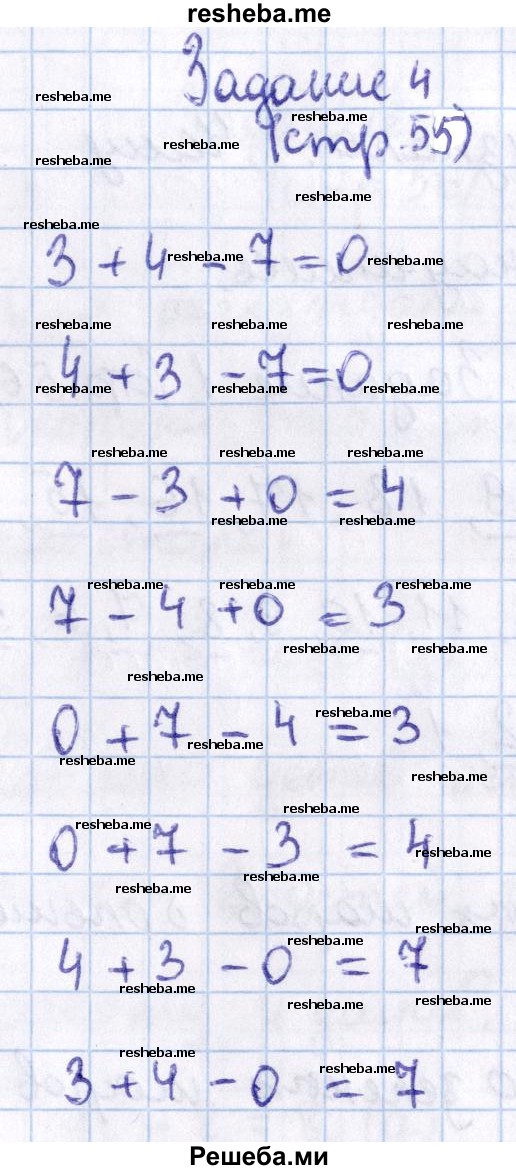 resheba.me
Задание 4
resheba.me
resheba.me
resheba.me (стр. 55)
resheba.me
resheba.me
resheba.me
3 + 4 - 7 = 0
resheba.me resheba.me
resheba.me resheba.me resheba.me
4 + 3 - 7 = 0
resheba.me resheba.me resheba.me
resheba.me resheba.me resheba.me
7 - 3 + 0 = 4
resheba.me resheba.me
resheba.me resheba.me resheba.me
7 - 4 + 0 = 3
resheba.me resheba.me
resheba.me
resheba.me
0 + 7 - 4 = 3
resheba.me
resheba.me
resheba.me
resheba.me
resheba.me
0 + 7 - 3 = 4
resheba.me
resheba.me resheba.me
resheba.me
4 + 3 - 0 = 7
resheba.me resheba.me
resheba.me resheba.me
resheba.me
resheba.me
3 + 4 - 0 = 7
Решеба.ми